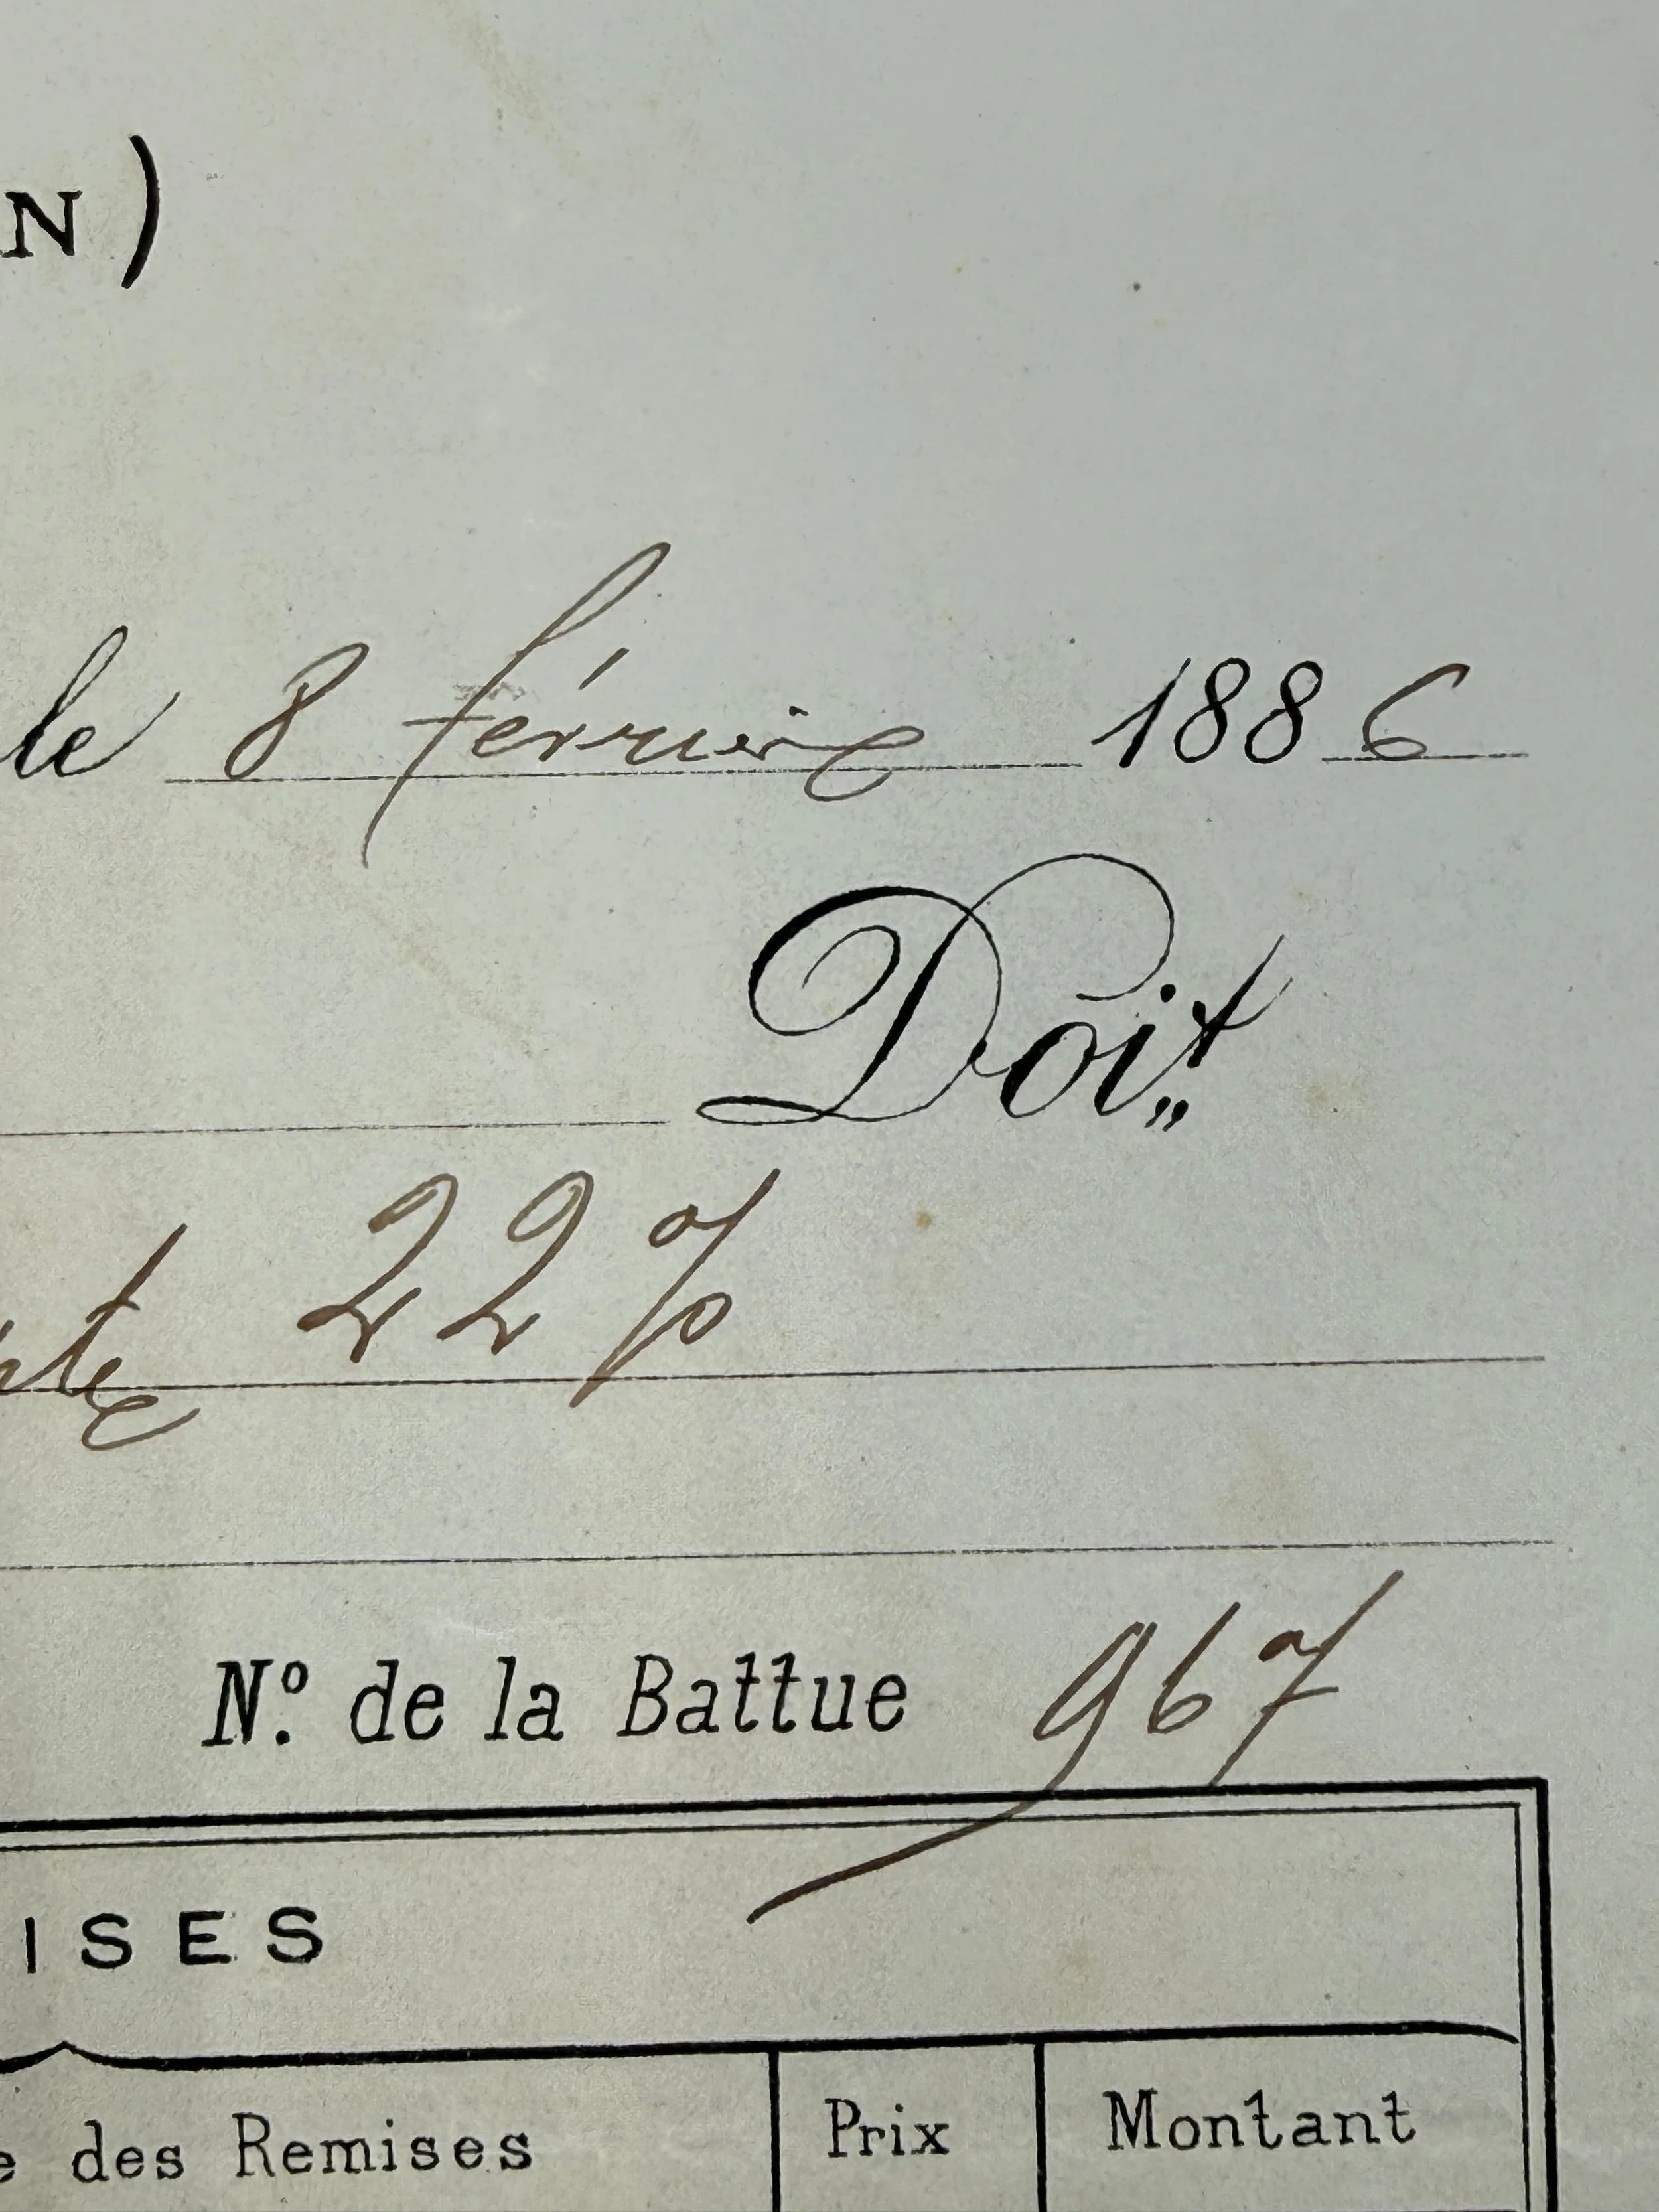 N)
le 8 février 1886
Doit„
22 %
N.º de la Battue 967
ISES
e des Remises Prix Montant